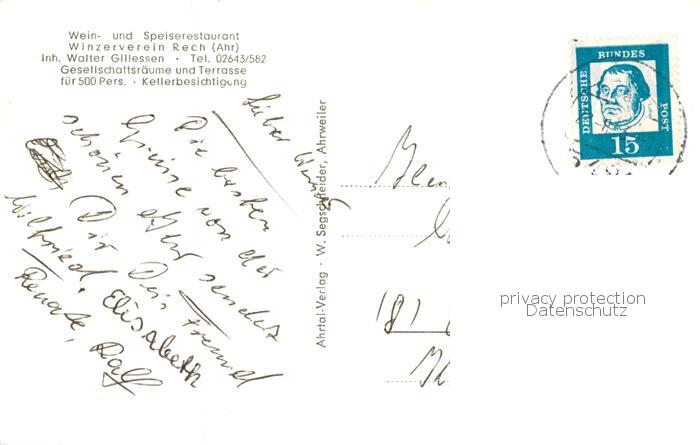 Wein- und Speiserestaurant
Winzerverein Rech (Ahr)
Inh. Walter Gillessen · Tel. 02643/582
Gesellschaftsräume und Terrasse
für 500 Pers. · Kellerbesichtigung
Lieber
Die besten
Grüsse von der
schönen Ahr sendet
Dir Dein Freund
Wilfried, Elisabeth
Renate, Ralf
Ahrtal-Verlag · W. Segschneider, Ahrweiler
181
DEUTSCHE BUNDES POST
15
privacy protection
Datenschutz